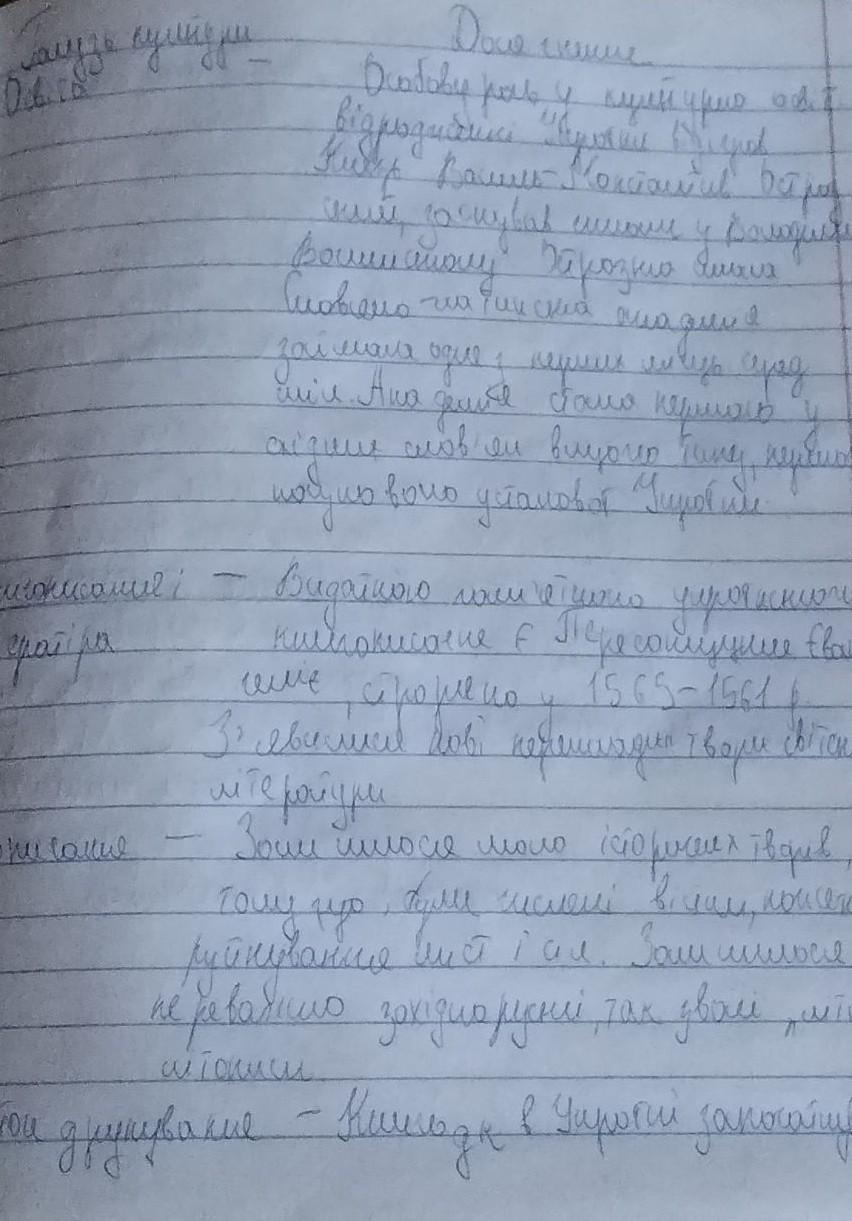 Галузь культури Досягнення
Освіта — Особову роль у культурно осві
відродженні України відіграв
Князь Василь-Костянтин Остроз
ський, заснував школи у Володимирі
Волинському
Словяно-латинська академія
займала одне з перших місць серед
шкіл. Академія стала першою у
східних слов'ян вищого типу, першою
науковою установою України.
гописання і — Видатною пам'яткою українського
ература книгописання є Пересопницьке Єван
геліє, створено у 1565-1561 р.
З'явилися нові перекладні твори світськ
літератури
писання — Залишилося мало історичних творів,
тому що, були численні війни, пожеж
руйнування міст і сил. Залишилося
переважно західноруські, так звані „лит
літописи
друкування — Книгодр в Україні започатку